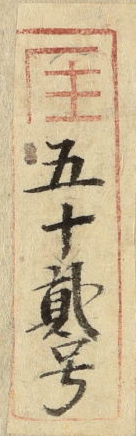 五十貳号